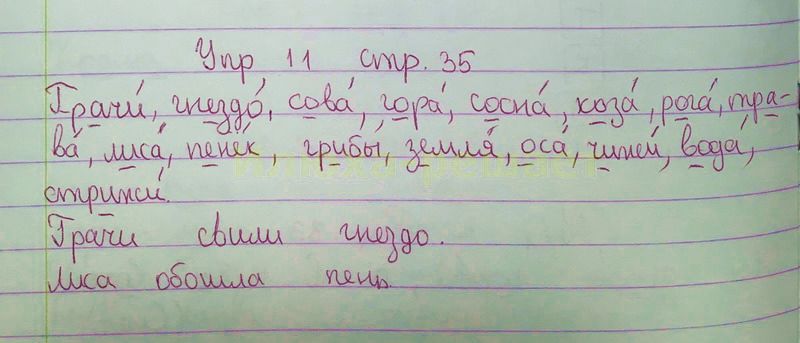 Упр. 11 стр. 35
Грачи́, гнездо́, сова́, гора́, сосна́, коза́, рога́, тра-
ва́, лиса́, пенёк, грибы́, земля́, оса́, чижи́, вода́,
стрижи́.
Грачи свили гнездо.
Лиса обошла пень.